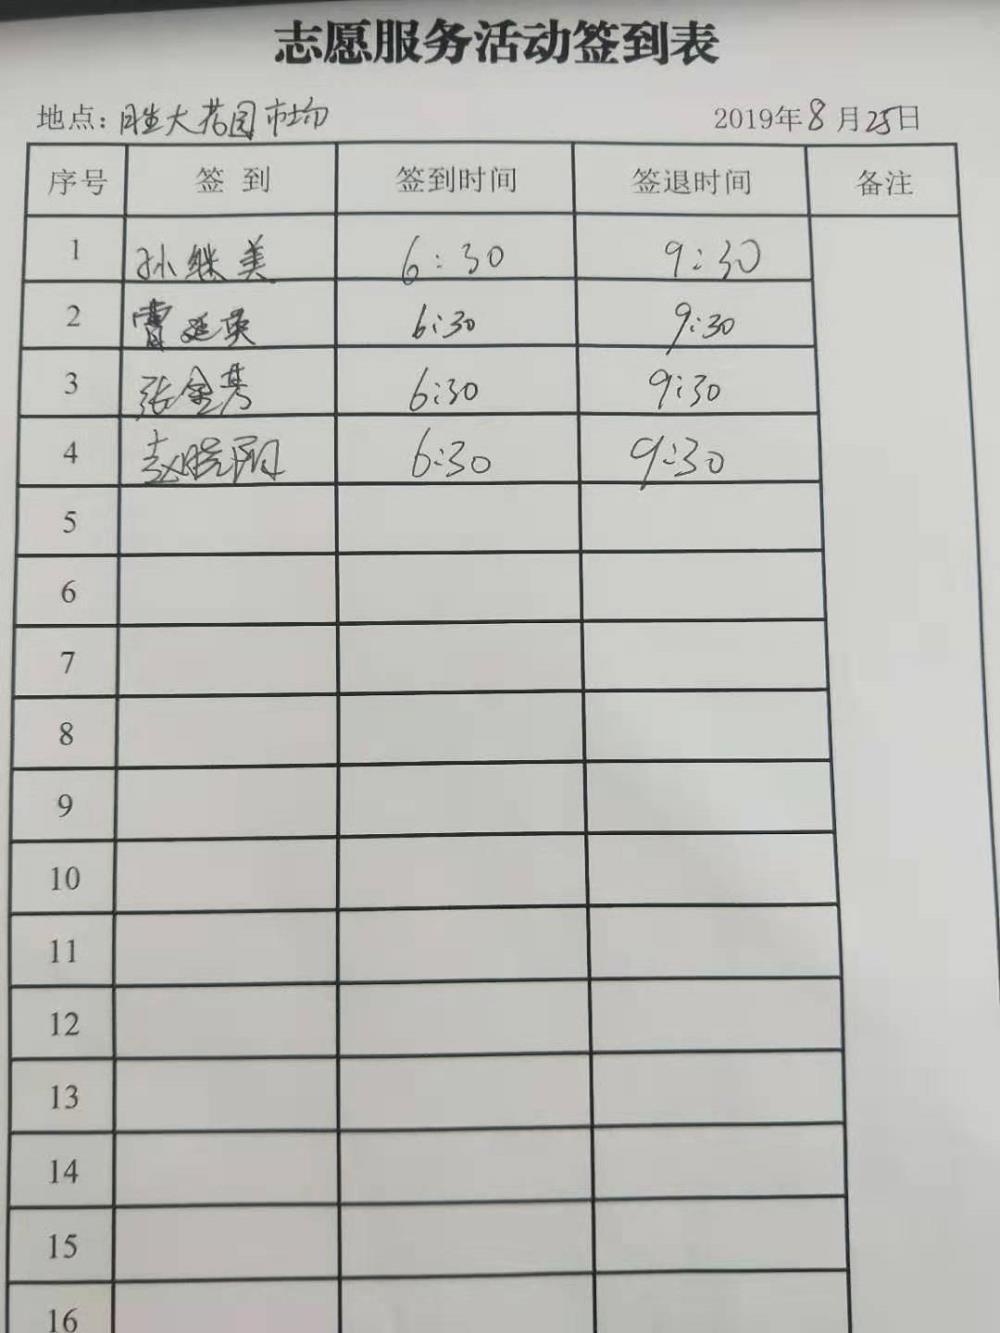 志愿服务活动签到表
地点：胜大花园市场 2019年8月25日
序号 签 到 签到时间 签退时间 备注
1 孙继美 6:30 9:30
2 曹延英 6:30 9:30
3 张金秀 6:30 9:30
4 赵晓阳 6:30 9:30
5
6
7
8
9
10
11
12
13
14
15
16